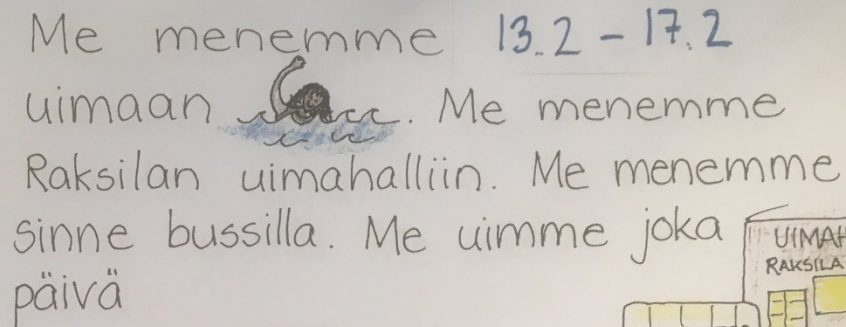 Me menemme 13.2 – 17.2
uimaan. Me menemme
Raksilan uimahalliin. Me menemme
sinne bussilla. Me uimme joka
päivä
UIMAH
RAKSILA